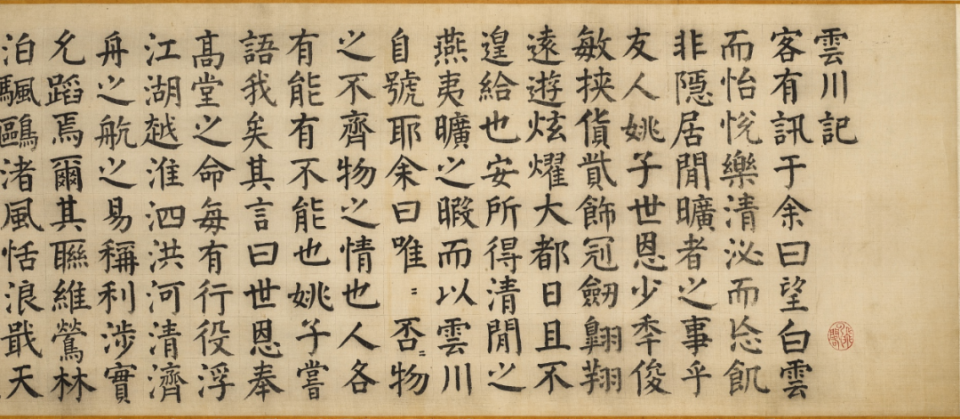 雲川記
客有訊于余曰望白雲
而怡悅樂清泌而忘飢
非隱居閒曠者之事乎
友人姚子世恩少秊俊
敏挟貨貲飾冠劒翺翔
遠遊炫燿大都日且不
遑給也安所得清閒之
燕夷曠之暇而以雲川
自號耶余曰唯〻否〻物
之不齊物之情也人各
有能有不能也姚子嘗
語我矣其言曰世恩奉
髙堂之命每有行役浮
江湖越淮泗洪河清濟
舟之航之易稱利涉實
允蹈焉爾其聮維鶯林
泊颿鷗渚風恬浪戢天